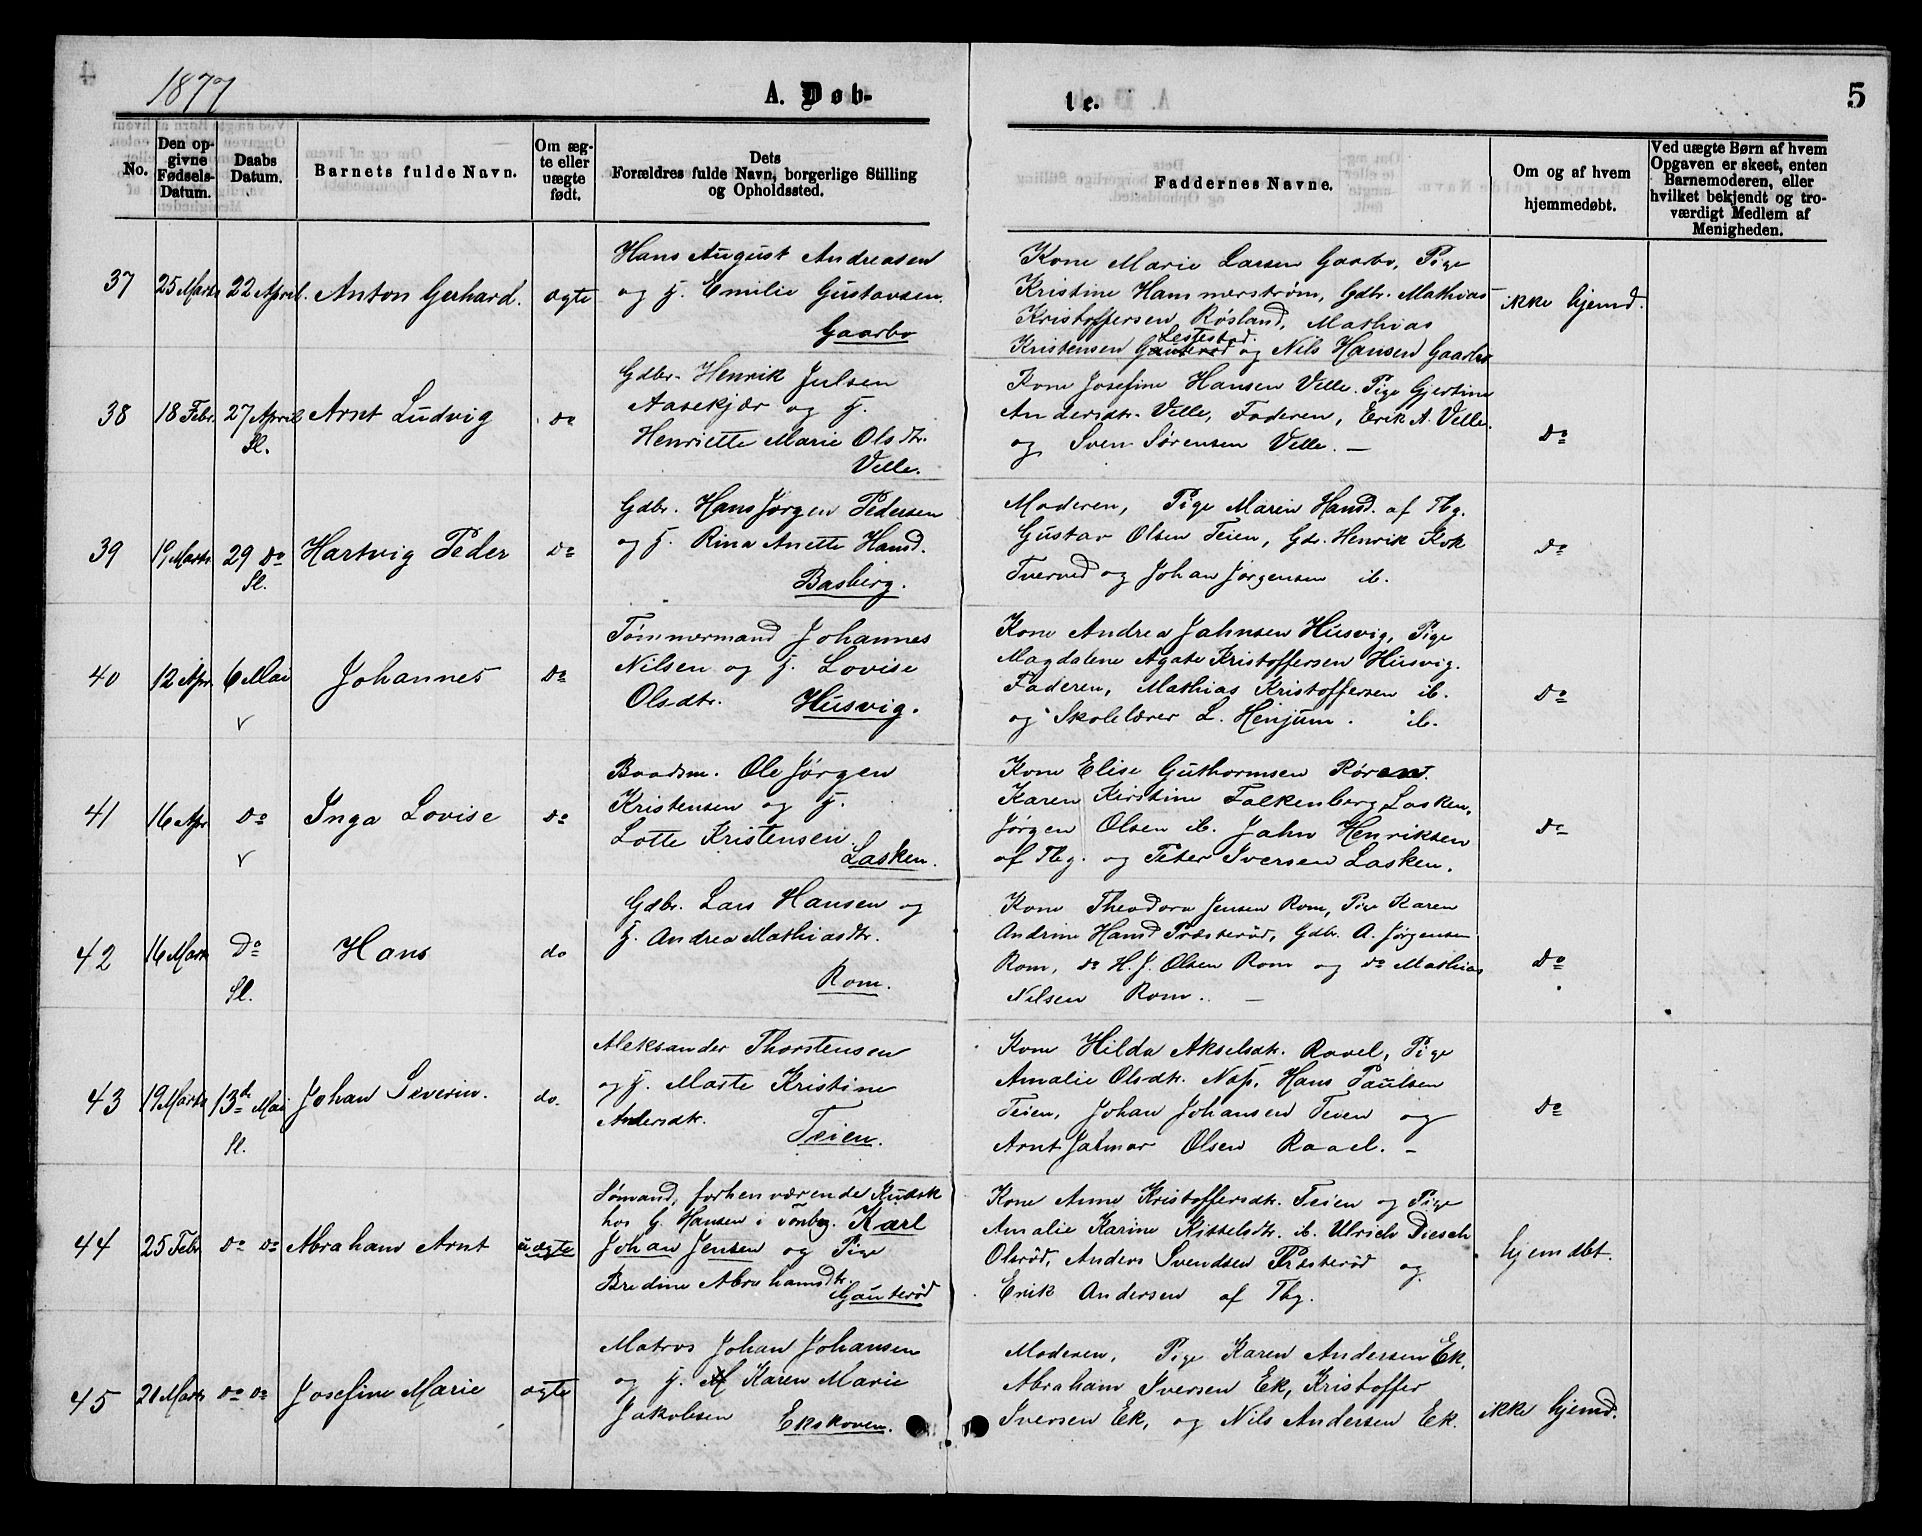 1877
A. Døb-
te.
5
No.
Den op-
givne
Fødsels-
Datum.
Daabs
Datum.
Barnets fulde Navn.
Om æg-
te eller
uægte
født.
Dets
Forældres fulde Navn, borgerlige Stilling
og Opholdssted.
Faddernes Navne.
Om og af hvem
hjemmedøbt.
Ved uægte Børn af hvem
Opgaven er skeet, enten
Barnemoderen, eller
hvilket bekjendt og tro-
værdigt Medlem af
Menigheden.
37 25 Marts 22 April. Anton Gerhard. ægte
Hans August Andreasen
og H. Emilie Gustavsen
Gaarbo
Kone Marie Larsen Gaarbo, Pige
Kristine Hammerstrøm, Gdbr. Mathias
Kristoffersen Røsland, Mathias
Lestestad.
Kristensen Gauterød og Nils Hansen Gaarbo
ikke hjemd.
38 18 Febr. 27 April Arnt Ludvig do
Sl.
Gdbr. Henrik Julsen
Aasekjær og H.
Henriette Marie Olsdtr.
Velle.
Kone Josefine Hansen Velle. Pige Gjertine
Andersdtr. Velle, Faderen, Erik A. Velle.
og Sven Sørensen Velle. —
do
39 19 Marts 29 do Hartvig Peder do
Sl.
Gdbr. Hans Jørgen Pedersen
og H. Rina Anette Hansd.
Basberg.
Moderen, Pige Maren Hansd. af Tbg.
Gustav Olsen Teien, Gdr. Henrik Kok
Tverved og Johan Jørgensen ib.
do
40 12 Apr. 6 Mai Johannes do
v
Tømmermand Johannes
Nilsen og H. Lovise
Olsdtr. Husvig.
Kone Andrea Jahnsen Husvig, Pige
Magdalene Agate Kristoffersen Husvig.
Faderen, Mathias Kristoffersen ib.
og Skolelærer L. Henjum. ib.
do
41 16 Apr do Inga Lovise do
v
Baadsm. Ole Jørgen
Kristensen og H.
Lotte Kristensen.
Lasken.
Kone Elise Guthormsen Røren.
Karen Kirstine Falkenberg Lasken,
Jørgen Olsen ib. Jahn Henriksen
af Tbg. og Peter Iversen Lasken.
do
42 16 Marts Do Hans do
Sl.
Gdbr. Lars Hansen og
H. Andrea Mathiasdtr.
Rom.
Kone Theodora Jensen Rom, Pige Karen
Andrine Hansd Præsterød, Gdbr. A. Jørgensen
Rom, do H. J. Olsen Rom og do Mathias
Nilsen Rom. —
Do
43 19 Marts 13de Mai Johan Severin. do.
Sl.
Aleksander Thorstensen
og H. Marte Kristine
Andersdtr. Teien.
Kone Hilda Akselsdtr. Raael, Pige
Amalie Olsdtr. Næs, Hans Paulsen
Teien, Johan Johansen Teien og
Arnt Jalmar Olsen Raael. —
Do
44 25 Febr do do Abraham Arnt uægte
Sømand, forhenværende Kudsk
hos G. Hansen i Tønbg. Karl
Johan Jensen og Pige
Bredine Abrahamsdtr.
Gauterød
Kone Anne Kristoffersdtr. Teien og Pige
Amalie Karine Kittelsdtr. ib. Ulrich Diesch
Olsrød, Anders Svendsen Præsterød og
Erik Andersen af Tbg.
hjemdbt.
45 21 Marts do do Josefine Marie ægte
Matros Johan Johansen
og H. Karen Marie
Jakobsen Ekskoven.
Moderen, Pige Karen Andersen Ek.
Abraham Iversen Ek, Kristoffer
Iversen Ek, og Nils Andersen Ek.
ikke hjemd.